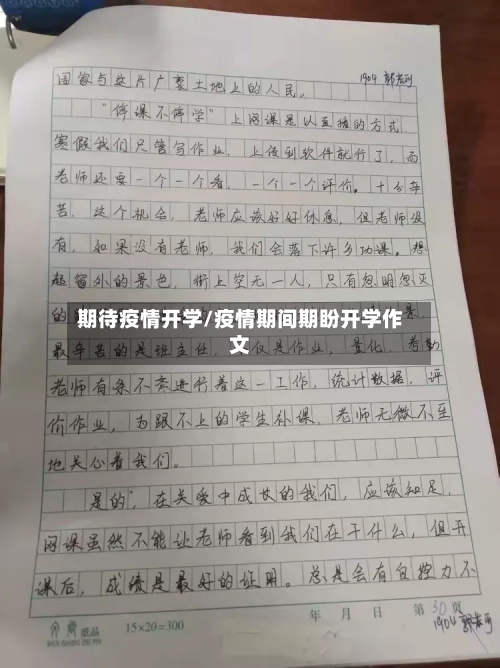 1904
国家与这片广袤土地上的人民。
"停课不停学"上网课是以直播的方式,
寒假我们只管写作业,上传到软件就行了,而
老师还要一个一个看,一个一个评价。十分辛
苦,这个机会,老师应该好好休息,但老师没
有,如果没有老师,我们会落下许多功课。想
起窗外的景色,街上空无一人,只有忽明忽灭
的
期待疫情开学/疫情期间期盼开学作
文
最辛苦的是班主任,仅是作业,量化,考勤
老师有条不紊进行着这一工作,统计数据,评
价作业,为跟不上的学生补课,老师无微不至
地关心着我们。
是的,在关爱中成长的我们,应该知足,
网课虽然不能让老师看到我们在干什么,但开
课后,成绩是最好的证明。总是会有自控力不
纸品
15×20=300
年 月 日 第30页
1904